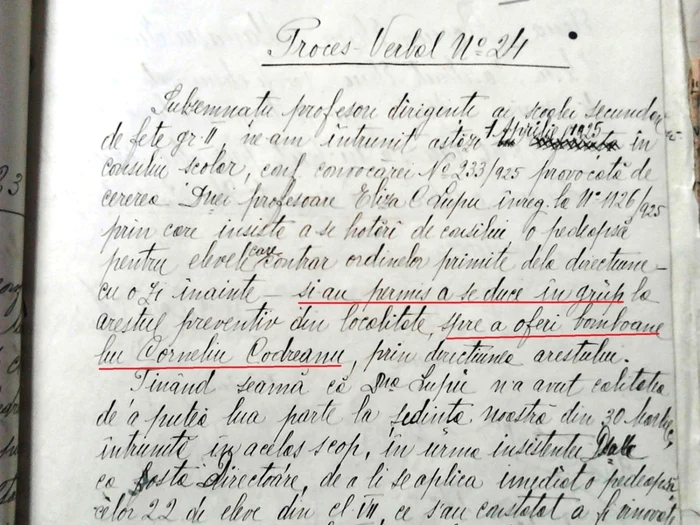 Proces-Verbal No 24
Subsemnatii profesori diriginte ai școlei secundare
de fete gr. II, ne-am întrunit astăzi 1 Aprilie 1925 în
consiliu școlar, conf. convocărei No 233/925 provocată de
cererea Dnei profesoare Eliza C Lupu înreg. la No 1126/925
prin care insistă a se hotărî de consiliu o pedeapsă
pentru elevele care contrar ordinelor primite dela direcțiune –
cu o zi înainte – și-au permis a se duce în grup la
arestul preventiv din localitate, spre a oferi bomboane
lui Corneliu Codreanu, prin direcțiunea arestului.
Ținând seamă că Dna Lupu n'a avut calitatea
de a putea lua parte la ședința noastră din 30 Martie,
întrunită în acelaș scop, în urma insistentei Dsale
ca fostă directoare, de a li se aplica imediat o pedeapsă
celor 22 de eleve din cl III, ce s'au constatat a fi vinovate
23